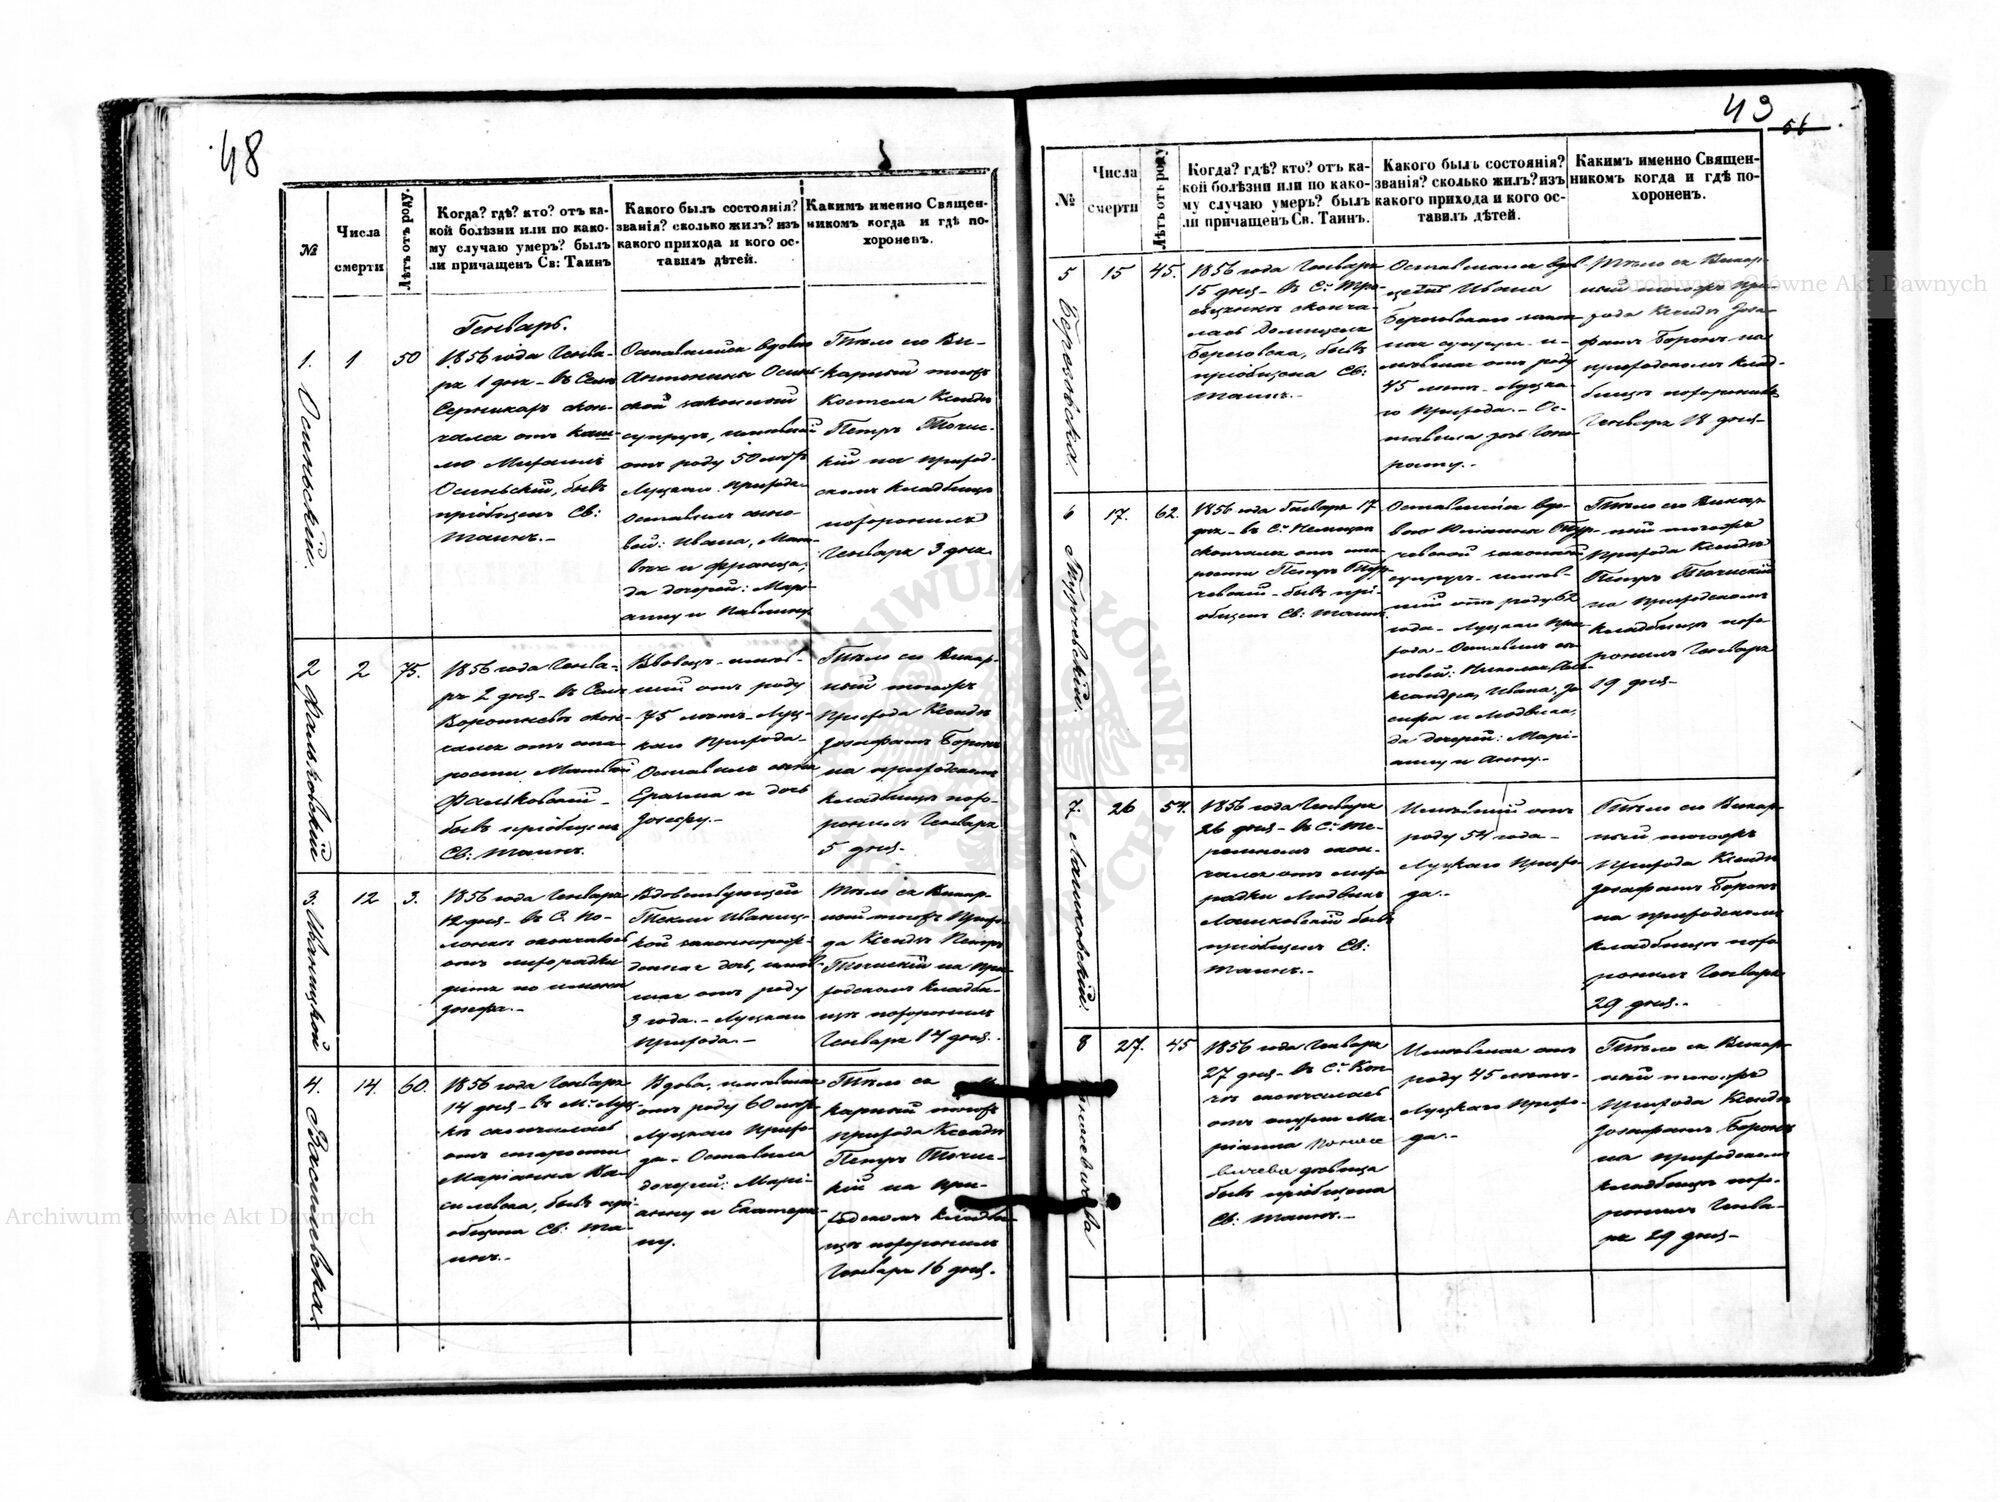 48
№
Числа
смерти
Лѣтъ отъ роду.
Когда? гдѣ? кто? отъ ка-
кой болѣзни или по како-
му случаю умеръ? былъ
ли причащенъ Св: Таинъ
Какого былъ состоянія?
званія? сколько жилъ? изъ
какого прихода и кого ос-
тавилъ дѣтей.
Какимъ именно Священ-
никомъ когда и гдѣ по-
хороненъ.
Генварь.
1.
Осиньскій.
1
50
1856 года Генва-
ря 1 дня - въ Селѣ
скон-
чался отъ каш-
лю Михаилъ
Осиньскій, бывъ
пріобщенъ Св:
Таинъ.-
Оставшійся вдовою
Антонины Осинь-
ской законный
супругъ, имѣвшій
отъ роду 50 лѣтъ
Луцкаго прихода
Оставилъ сыно-
вей: Ивана,
и Франца,
да дочерей: Мар-
анну и Павлину
Тѣло его Ви-
карный тогожъ
Костела Ксендзъ
Петръ
кій на приход-
скомъ кладбищѣ
похоронилъ
Генваря 3 дня.
2
Фальковскій
2
75.
1856 года Генва-
ря 2 дня - въ Селѣ
скон-
чался отъ ста-
рости Матвей
Фальковскій -
бывъ пріобщенъ
Св: Таинъ.
Вдовецъ - имѣв-
шій отъ роду
75 лѣтъ - Луц-
каго Прихода -
Оставилъ сына
и дочь
Іозефу.-
Тѣло его Викар-
ный тогожъ
Прихода Ксендзъ
Іозафатъ
на приходскомъ
кладбищѣ похо-
ронилъ Генваря
5 дня.-
3.
Иваницкой
12
3.
1856 года Генваря
12 дня - въ С. По-
скончалось
отъ лихорадки
дитя по имени
Іозефа.-
Вдовствующей
Теклы Иваниц-
кой законнорож-
денная дочь, имѣв-
шая отъ роду
3 года. - Луцкаго
Прихода.-
Тѣло ея Викар-
ный тогожъ Прихо-
да Ксендзъ Петръ
на При-
ходскомъ кладби-
щѣ похоронилъ
Генваря 14 дня.
4.
Василевска.
14.
60.
1856 года Генваря
14 дня - въ М. Луц-
кѣ скончалась
отъ старости
Маріанна Ва-
силевска, бывъ прі-
общена Св: Та-
инъ.-
Вдова, имѣвшая
отъ роду 60 лѣтъ
Луцкаго Прихо-
да - Оставила
дочерей: Марі-
анну и Екатери-
ну.
Тѣло ея Ви-
карный тогожъ
прихода Ксендзъ
Петръ
кій на При-
ходскомъ кладби-
щѣ похоронилъ
Генваря 16 дня.
№
Числа
смерти
Лѣтъ отъ роду.
Когда? гдѣ? кто? отъ ка-
кой болѣзни или по како-
му случаю умеръ? былъ
ли причащенъ Св. Таинъ.
Какого былъ состоянія?
званія? сколько жилъ? изъ
какого прихода и кого ос-
тавилъ дѣтей.
Какимъ именно Священ-
никомъ когда и гдѣ по-
хороненъ.
5
15
45.
1856 года Генваря
15 дня - въ С.
сконча-
лась
бывъ
пріобщена Св:
Таинъ.-
Оставшаяся
Ивана
закон-
ная супруга - и-
мѣвшая отъ роду
45 лѣтъ - Луцка-
го Прихода. - Ос-
тавила дочь Гоно-
рату.-
Тѣло ея Викар-
ный тогожъ При-
хода Ксендзъ Іоза-
фатъ на
приходскомъ клад-
бищѣ похоронилъ
Генваря 18 дня.-
6
17.
62.
1856 года Генваря 17
дня - въ С.
скончался отъ ста-
рости Петръ
бывъ прі-
общенъ Св: Таинъ
Оставшійся вдо-
вою Юліанны
законный
супругъ - имѣв-
шій отъ роду 62
года - Луцкаго При-
хода - Оставилъ сы-
новей: Николая, Але-
ксандра, Ивана, Іо-
сифа и Людвика,
да дочерей: Марі-
анну и Анну.-
Тѣло его Викар-
ный тогожъ
Прихода Ксендзъ
Петръ
на Приходскомъ
кладбищѣ похо-
ронилъ Генваря
19 дня.-
7.
Лашковскій.
26
54.
1856 года Генваря
26 дня - въ С. Те-
скон-
чался отъ лихо-
радки Людвикъ
Лашковскій бывъ
пріобщенъ Св:
Таинъ.-
Имѣвшій отъ
роду 54 года -
Луцкаго Прихо-
да.-
Тѣло его Викар-
ный тогожъ
Прихода Ксендзъ
Іозафатъ
на приходскомъ
кладбищѣ похо-
ронилъ Генваря
29 дня.-
8
27.
45
1856 года Генваря
27 дня - въ С.
скончалась
отъ Ма-
ріанна
вдовица
бывъ пріобщена
Св: Таинъ.-
Имѣвшая отъ
роду 45 лѣтъ -
Луцкаго Прихо-
да.-
Тѣло ея Викар-
ный тогожъ
Прихода Ксендзъ
Іозафатъ
на приходскомъ
кладбищѣ похо-
ронилъ Генва-
ря 29 дня.-
Archiwum Główne Akt Dawnych
Archiwum Główne Akt Dawnych
ARCHIWUM GŁÓWNE AKT DAWNYCH